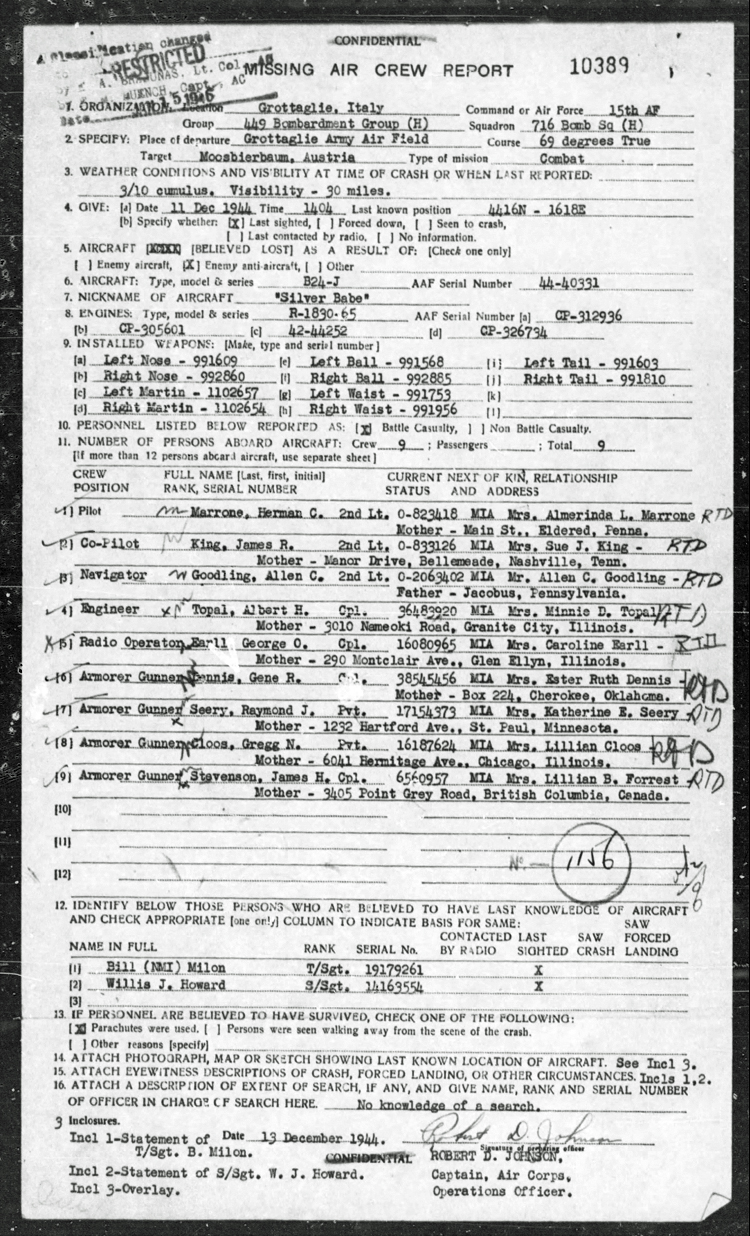 CONFIDENTIAL
A Classification changed
RESTRICTED
MISSING AIR CREW REPORT 10389
Lt. Col., AB
Capt., AC
Date
1. ORGANIZATION: Location Grottaglie, Italy Command or Air Force 15th AF
Group 449 Bombardment Group (H) Squadron 716 Bomb Sq (H)
2. SPECIFY: Place of departure Grottaglie Army Air Field Course 69 degrees True
Target Moosbierbaum, Austria Type of mission Combat
3. WEATHER CONDITIONS AND VISIBILITY AT TIME OF CRASH OR WHEN LAST REPORTED:
3/10 cumulus. Visibility - 30 miles.
4. GIVE: [a] Date 11 Dec 1944 Time 1404 Last known position 4416N - 1618E
[b] Specify whether: [X] Last sighted, [ ] Forced down, [ ] Seen to crash,
[ ] Last contacted by radio, [ ] No information.
5. AIRCRAFT [BELIEVED LOST] AS A RESULT OF: [Check one only]
[ ] Enemy aircraft, [X] Enemy anti-aircraft, [ ] Other
6. AIRCRAFT: Type, model & series B24-J AAF Serial Number 44-40331
7. NICKNAME OF AIRCRAFT "Silver Babe"
8. ENGINES: Type, model & series R-1830-65 AAF Serial Number [a] CP-312936
[b] CP-305601 [c] 42-44252 [d] CP-326734
9. INSTALLED WEAPONS: [Make, type and serial number]
[a] Left Nose - 991609 [e] Left Ball - 991568 [i] Left Tail - 991603
[b] Right Nose - 992860 [f] Right Ball - 992885 [j] Right Tail - 991810
[c] Left Martin - 1102657 [g] Left Waist - 991753 [k]
[d] Right Martin - 1102654 [h] Right Waist - 991956 [l]
10. PERSONNEL LISTED BELOW REPORTED AS: [X] Battle Casualty, [ ] Non Battle Casualty.
11. NUMBER OF PERSONS ABOARD AIRCRAFT: Crew 9 ; Passengers ; Total 9
[If more than 12 persons aboard aircraft, use separate sheet]
CREW FULL NAME [Last, first, initial] CURRENT NEXT OF KIN, RELATIONSHIP
POSITION RANK, SERIAL NUMBER STATUS AND ADDRESS
[1] Pilot Marrone, Herman C. 2nd Lt. O-823418 MIA Mrs. Almerinda L. Marrone RTD
Mother - Main St., Eldered, Penna.
[2] Co-Pilot King, James R. 2nd Lt. O-833126 MIA Mrs. Sue J. King - RTD
Mother - Manor Drive, Bellemeade, Nashville, Tenn.
[3] Navigator Goodling, Allen C. 2nd Lt. O-2063402 MIA Mr. Allen C. Goodling - RTD
Father - Jacobus, Pennsylvania.
[4] Engineer Topal, Albert H. Cpl. 36483920 MIA Mrs. Minnie D. Topal RTD
Mother - 3010 Nameoki Road, Granite City, Illinois.
[5] Radio Operator Earll George O. Cpl. 16080965 MIA Mrs. Caroline Earll - RTD
Mother - 290 Montclair Ave., Glen Ellyn, Illinois.
[6] Armorer Gunner Dennis, Gene R. Cpl. 38545456 MIA Mrs. Ester Ruth Dennis - RTD
Mother - Box 224, Cherokee, Oklahoma.
[7] Armorer Gunner Seery, Raymond J. Pvt. 17154373 MIA Mrs. Katherine E. Seery - RTD
Mother - 1232 Hartford Ave., St. Paul, Minnesota.
[8] Armorer Gunner Cloos, Gregg N. Pvt. 16187624 MIA Mrs. Lillian Cloos RTD
Mother - 6041 Hermitage Ave., Chicago, Illinois.
[9] Armorer Gunner Stevenson, James H. Cpl. 6560957 MIA Mrs. Lillian B. Forrest - RTD
Mother - 3405 Point Grey Road, British Columbia, Canada.
[10]
[11]
No. - 1156
[12]
12. IDENTIFY BELOW THOSE PERSONS WHO ARE BELIEVED TO HAVE LAST KNOWLEDGE OF AIRCRAFT
AND CHECK APPROPRIATE [one only] COLUMN TO INDICATE BASIS FOR SAME: SAW
CONTACTED LAST SAW FORCED
NAME IN FULL RANK SERIAL No. BY RADIO SIGHTED CRASH LANDING
[1] Bill (NMI) Milon T/Sgt. 19179261 X
[2] Willis J. Howard S/Sgt. 14163554 X
[3]
13. IF PERSONNEL ARE BELIEVED TO HAVE SURVIVED, CHECK ONE OF THE FOLLOWING:
[X] Parachutes were used. [ ] Persons were seen walking away from the scene of the crash.
[ ] Other reasons [specify]
14. ATTACH PHOTOGRAPH, MAP OR SKETCH SHOWING LAST KNOWN LOCATION OF AIRCRAFT. See Incl 3.
15. ATTACH EYEWITNESS DESCRIPTIONS OF CRASH, FORCED LANDING, OR OTHER CIRCUMSTANCES. Incls 1,2.
16. ATTACH A DESCRIPTION OF EXTENT OF SEARCH, IF ANY, AND GIVE NAME, RANK AND SERIAL NUMBER
OF OFFICER IN CHARGE OF SEARCH HERE. No knowledge of a search.
3 Inclosures.
Incl 1-Statement of Date 13 December 1944. Robert D. Johnson
T/Sgt. B. Milon. Signature of preparing officer
CONFIDENTIAL ROBERT D. JOHNSON,
Incl 2-Statement of S/Sgt. W. J. Howard. Captain, Air Corps,
Incl 3-Overlay. Operations Officer.